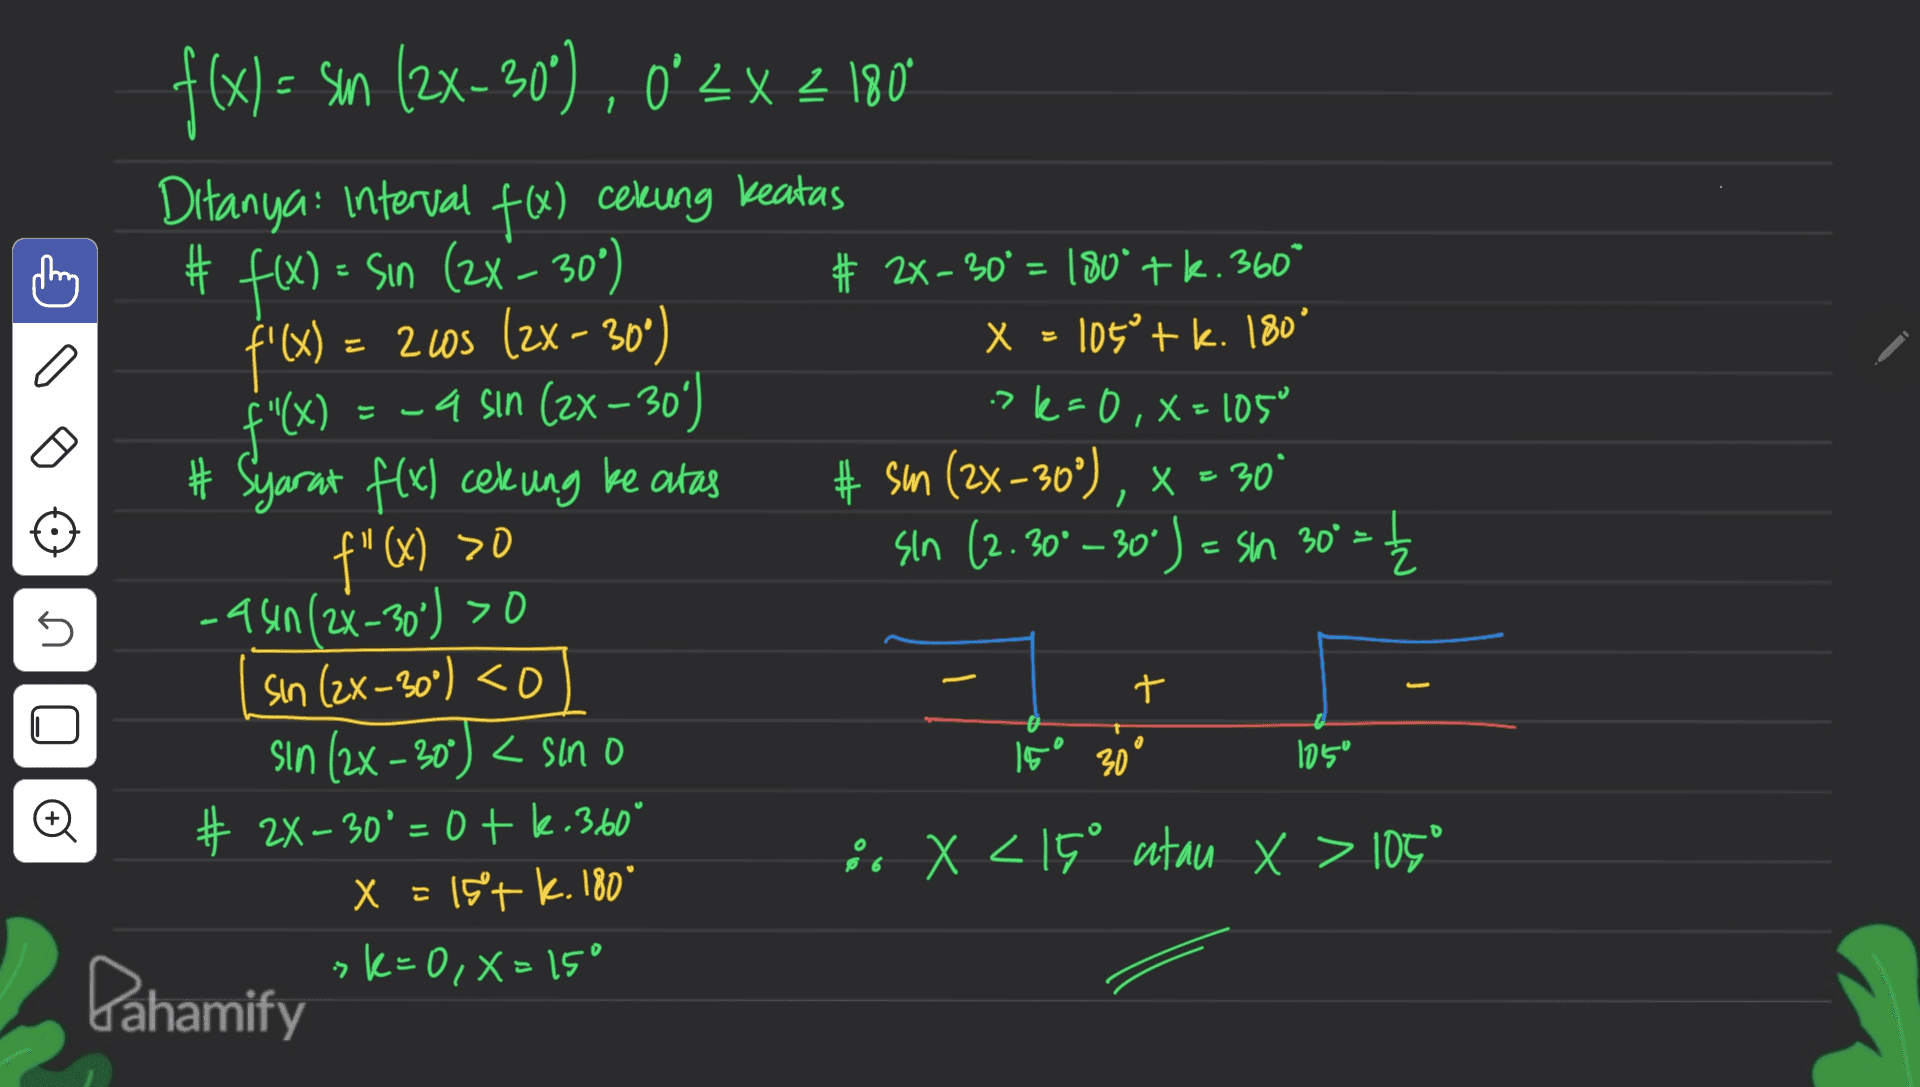 f(x) = sin (2x-30°), 0° ≤ x ≤ 180°
Ditanya: Interval f(x) cekung keatas
# f(x) = sin (2x - 30°)
f'(x) = 2 cos (2x - 30°)
f''(x) = -4 sin (2x - 30°)
# Syarat f(x) cekung ke atas
f''(x) > 0
-4 sin (2x - 30°) > 0
sin (2x - 30°) < 0
sin (2x - 30°) < sin 0
# 2x - 30° = 0 + k . 360°
x = 15° + k. 180°
> k = 0, x = 15°
# 2x - 30° = 180° + k . 360°
x = 105° + k. 180°
> k = 0, x = 105°
# sin (2x - 30°), x = 30°
sin (2. 30° - 30°) = sin 30° = 1/2
- + -
15° 30° 105°
∴ x < 15° atau x > 105°
Pahamify